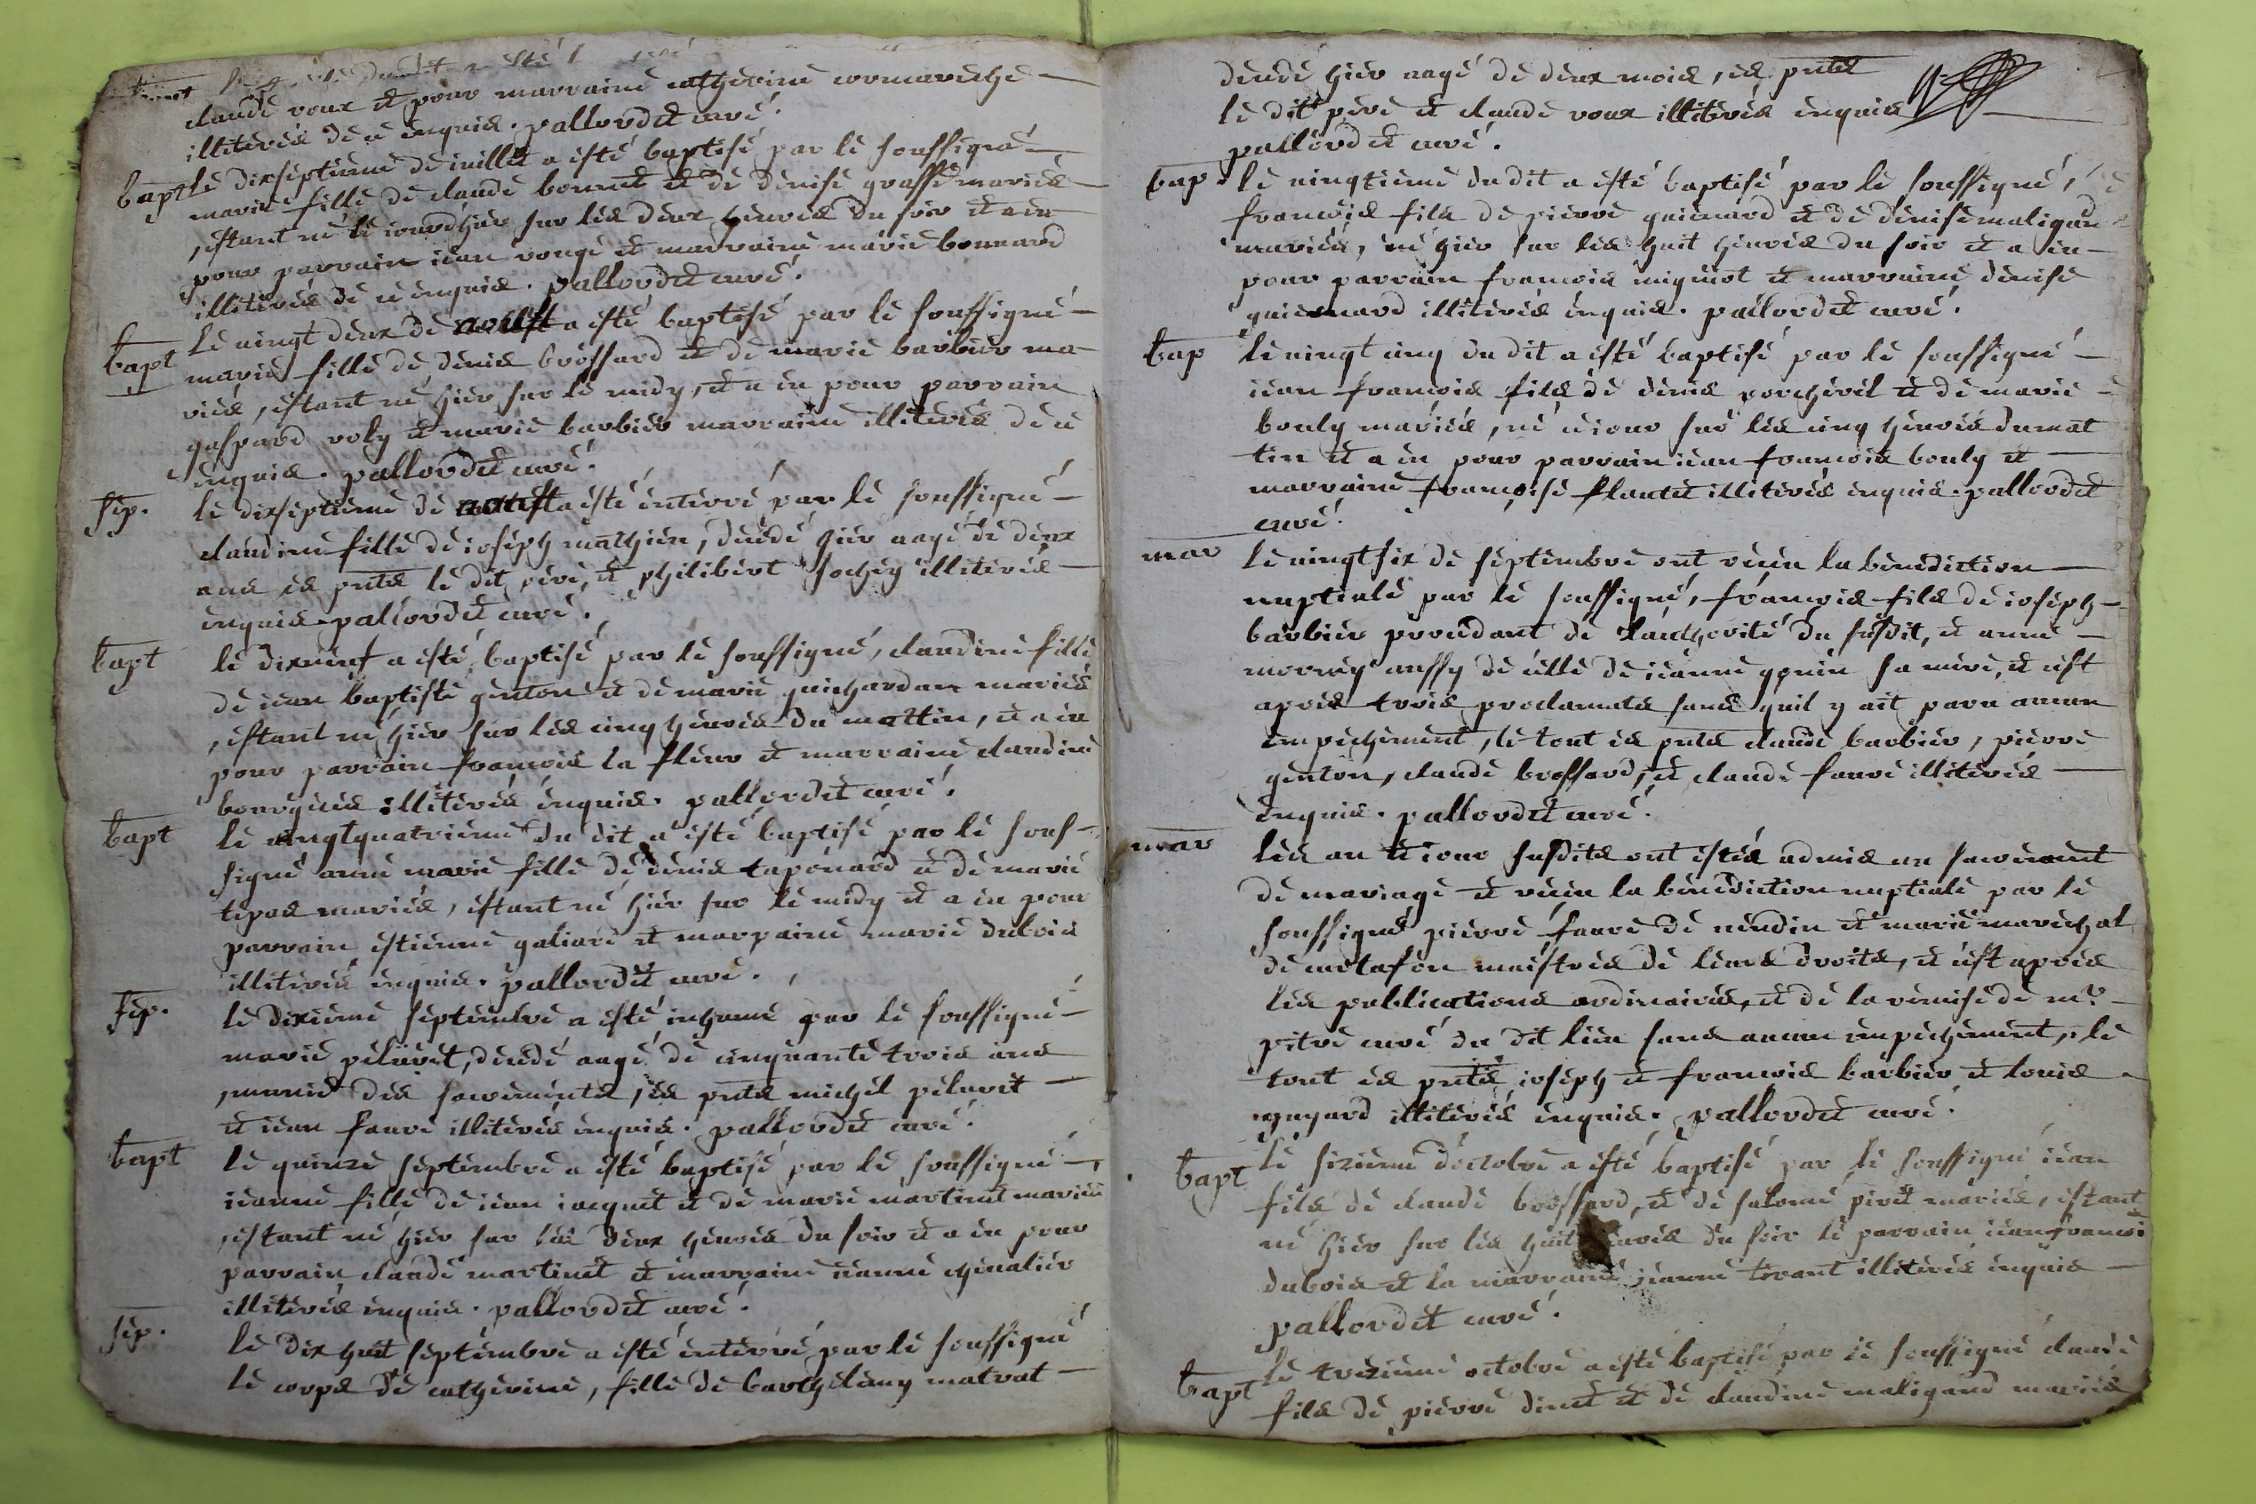 claude roux et pour marraine catherine cormareche
illiterés de ce enquis. pallordet curé.
bapt le dixseptieme de iuillet a esté baptisé par le soussigné
marie fille de claude bonnet et de denise grosse mariés
, estant né le iourdhier sur les deux heures du soir et a eu
pour parrain iean rougé et marraine marie bonnard
illiterés de ce enquis. pallordet curé.
bapt le vingt deux de aoust a esté baptisé par le soussigné
marie fille de denis brossard et de marie barbier ma-
riés, estant né hier sur le midy, et a eu pour parrain
gaspard roly et marie barbier marraine illiterés de ce
enquis. pallordet curé.
sep. le dixseptieme de aoust a esté enterré par le soussigné
claudine fille de ioseph mathieu, decedé hier aagé de deux
ans es pnts le dit pere, et philibert sochey illiterés
enquis pallordet curé.
bapt le dixneuf a esté baptisé par le soussigné, claudine fille
de iean baptiste genton et de marie guichardan mariés
, estant né hier sur les cinq heures du mattin, et a eu
pour parrain francois la fleur et marraine claudine
bourgeois illiterés enquis. pallordet curé.
bapt le vingtquatrieme du dit a esté baptisé par le sous-
signé anne marie fille de denis taponard et de marie
tepas mariés, estant né hier sur le midy et a eu pour
parrain estienne galiare et marraine marie dubois
illiterés enquis. pallordet curé.
sep. le dixieme septembre a esté inhumé par le soussigné
marie peluret, decedé aagé de cinquante trois ans
, munie des sacrements, es pnts michel peluret
et iean faure illiterés enquis. pallordet curé.
bapt le quinze septembre a esté baptisé par le soussigné
ieanne fille de iean iacquet et de marie martinet mariés
, estant né hier sur les deux heures du soir et a eu pour
parrain claude martinet et marraine ieanne chevalier
illiterés enquis. pallordet curé.
sep. le dix huit septembre a esté enterré par le soussigné
le corps de catherine, fille de barthelemy matrat
decedé hier aagé de deux mois, es pnts
le dit pere et claude roux illiterés enquis
pallordet curé.
bap. le vingtieme du dit a esté baptisé par le soussigné,
francois fils de pierre guienard et de denise maligand
mariés, né hier sur les huit heures du soir et a eu
pour parrain francois miguiot et marraine denise
guienard illiterés enquis. pallordet curé.
bap le vingt cinq du dit a esté baptisé par le soussigné
iean francois fils de denis porcherel et de marie
bouly mariés, né ce iour sur les cinq heures du mat
tin et a eu pour parrain iean francois bouly et
marraine francoise flautet illiterés enquis. pallordet
curé.
mar le vingtsix de septembre ont receu la benediction
nuptiale par le soussigné, francois fils de ioseph
barbier procedant de l'authorité du susdit, et anne
morney aussy de celle de ieanne gonin sa mere, et cest
apres trois proclamats sans quil y ait paru aucun
empechement, le tout es pnts claude barbier, pierre
genton, claude brossard, et claude faure illiterés
enquis. pallordet curé.
mar les an et iour susdits ont estés admis au sacrement
de mariage et receu la benediction nuptiale par le
soussigné pierre faure de neudin et marie marechal
de curtafon maistres de leurs droits, et cest apres
les publications ordinaires, et de la remise de mr
pitre curé du dit lieu sans aucun empechement, le
tout es pnts ioseph et francois barbier et louis
guyard illiterés enquis. pallordet curé.
bapt le sixieme doctobre a esté baptisé par le soussigné iean
fils de claude brossard, et de salomé piret mariés, estant
né hier sur les huit heures du soir le parrain iean francois
dubois et la marraine ieanne tirant illiterés enquis
pallordet curé.
bapt le trezieme octobre a esté baptisé par le soussigné claude
fils de pierre diret et de claudine maligand mariés